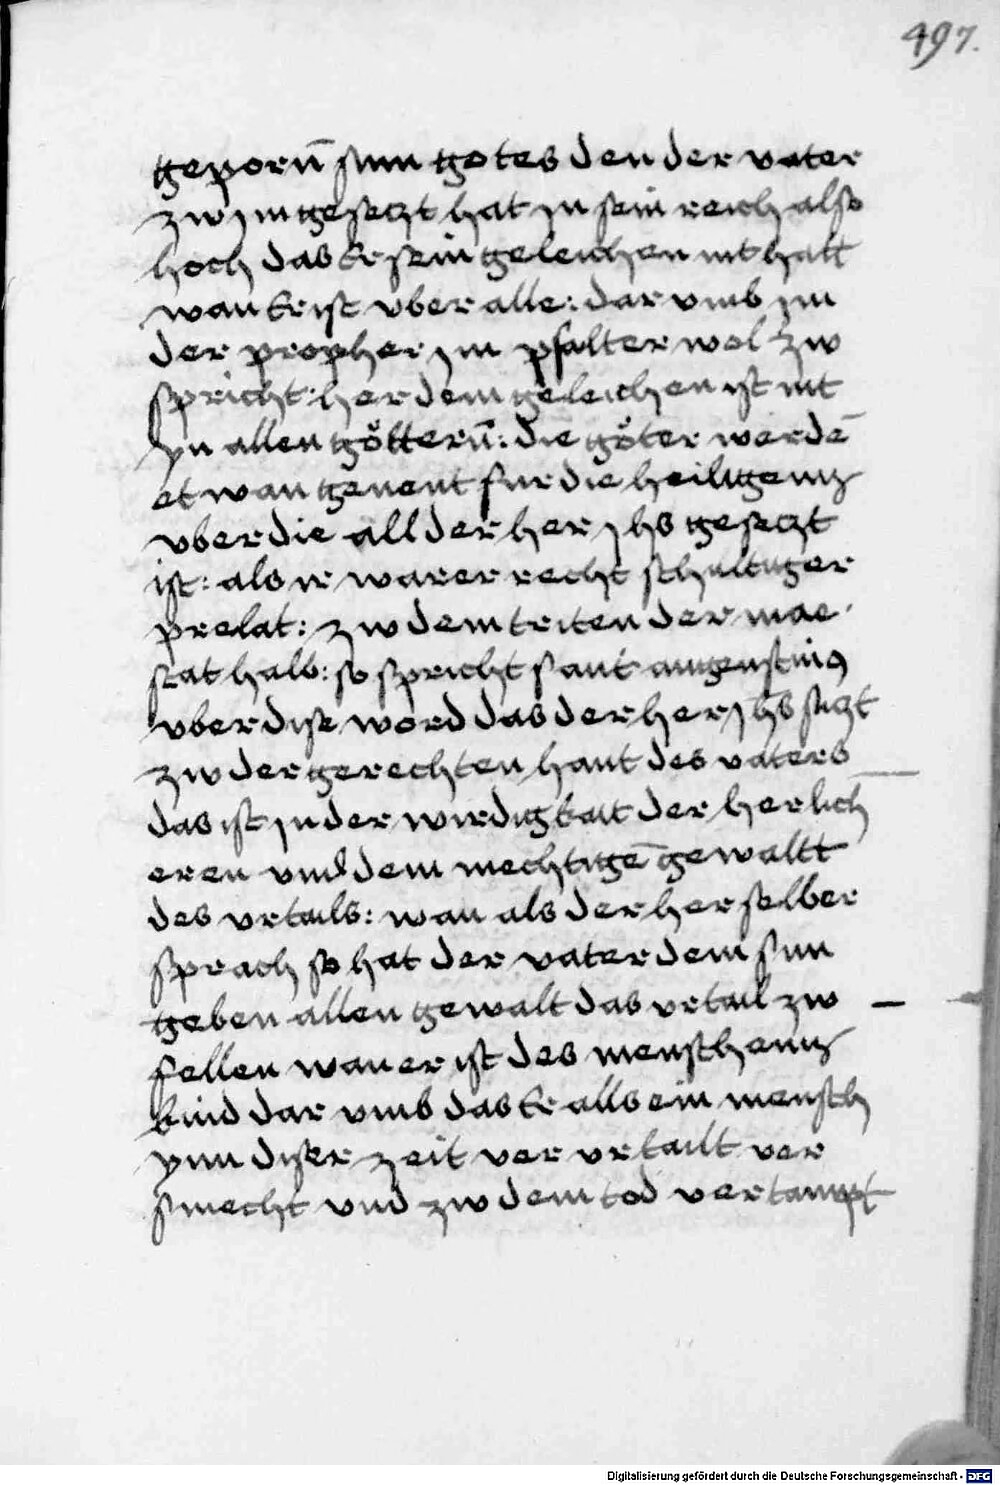 497.
geporn̄ sun gotes den der vater
zw im gesetzt hat in sein reich also
hoch das Er sein geleichen nit hatt
wan Er ist vber alle: dar vmb im
der prophet im psalter wol zw
spricht: her dem geleichen ist nit
yn allen göttern̄: die göter werdē
et wan genent fur die heiligenn
vber die all der her jhs gesetzt
ist: als ir warer recht schultiger
prelat: zw dem triten der mae
stat halb: so spricht sant augenstinus
vber dise word das der her jhs sitzt
zw der gerechten hant des vaters
das ist in der wirdigkait der herlich
eren vnd dem mechtigē gewaltt
des vrtails: wan als der her selber
sprach so hat der vater dem sun
geben allen gewalt das vrtail zw
fellen wan er ist des menschenn
kind dar vmb das Er alls ein mensch
ynn diser zeit ver vrtailt ver
smecht vnd zw dem tod vertampt
Digitalisierung gefördert durch die Deutsche Forschungsgemeinschaft - DFG